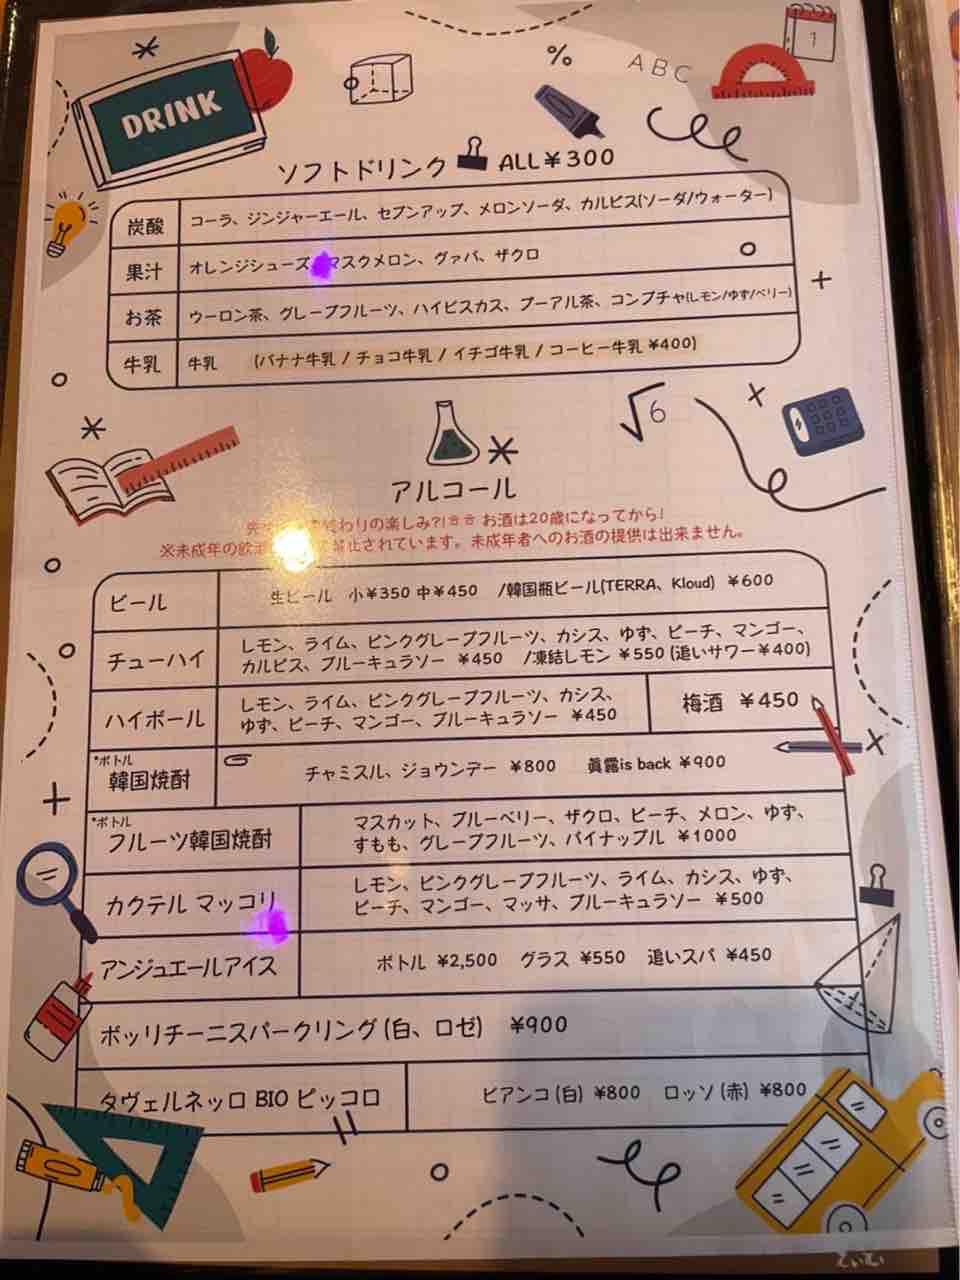 DRINK
1
%
ABC
ソフトドリンク ALL¥300
炭酸 コーラ、ジンジャーエール、セブンアップ、メロンソーダ、カルピス(ソーダ/ウォーター)
果汁 オレンジジュース、マスクメロン、グァバ、ザクロ
お茶 ウーロン茶、グレープフルーツ、ハイビスカス、プーアル茶、コンブチャ(レモン/ゆず/ベリー)
牛乳 牛乳 (バナナ牛乳 / チョコ牛乳 / イチゴ牛乳 / コーヒー牛乳 ¥400)
√6
アルコール
わりの楽しみ?!ㅎㅎ お酒は20歳になってから!
※未成年の飲 禁止されています。未成年者へのお酒の提供は出来ません。
ビール 生ビール 小¥350 中¥450 /韓国瓶ビール(TERRA、Kloud) ¥600
チューハイ レモン、ライム、ピンクグレープフルーツ、カシス、ゆず、ピーチ、マンゴー、
カルピス、ブルーキュラソー ¥450 /凍結レモン ¥550 (追いサワー¥400)
ハイボール レモン、ライム、ピンクグレープフルーツ、カシス、
ゆず、ピーチ、マンゴー、ブルーキュラソー ¥450
梅酒 ¥450
*ボトル
韓国焼酎 チャミスル、ジョウンデー ¥800 眞露is back ¥900
*ボトル
フルーツ韓国焼酎 マスカット、ブルーベリー、ザクロ、ピーチ、メロン、ゆず、
すもも、グレープフルーツ、パイナップル ¥1000
カクテル マッコリ レモン、ピンクグレープフルーツ、ライム、カシス、ゆず、
ピーチ、マンゴー、マッサ、ブルーキュラソー ¥500
アンジュエールアイス ボトル ¥2,500 グラス ¥550 追いスパ ¥450
ボッリチーニスパークリング (白、ロゼ) ¥900
タヴェルネッロ BIO ピッコロ ビアンコ (白) ¥800 ロッソ (赤) ¥800